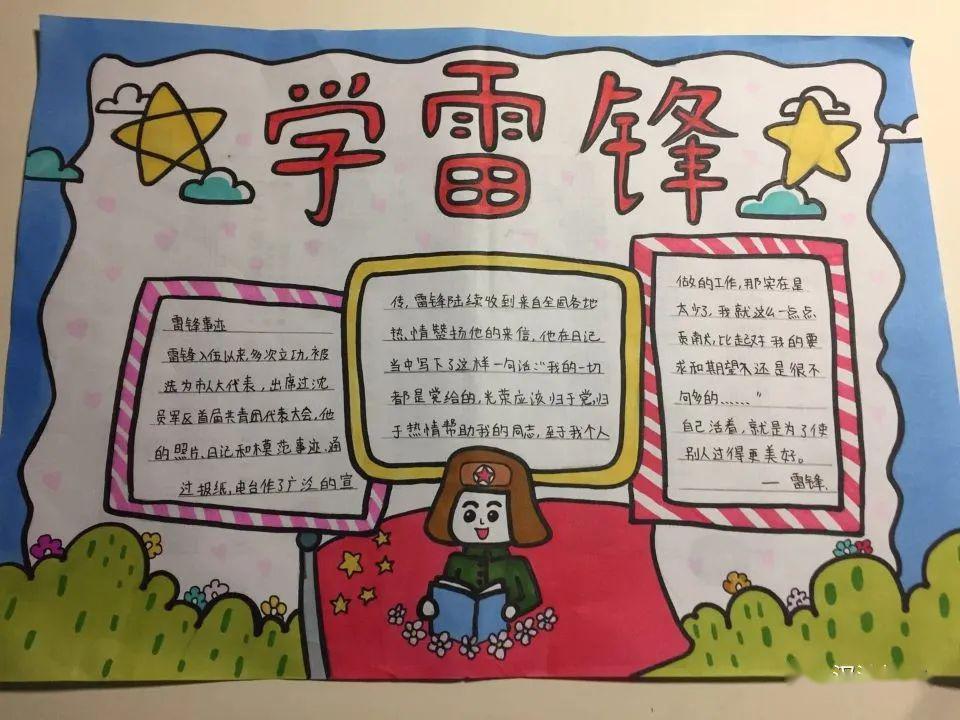 学雷锋
雷锋事迹
雷锋入伍以来,多次立功,被
选为市人大代表,出席过沈
员军区首届共青团代表大会,他
的照片、日记和模范事迹,通
过报纸,电台作了广泛的宣
传,雷锋陆续收到来自全国各地
热情赞扬他的来信,他在日记
当中写下了这样一句话:“我的一切
都是党给的,光荣应该归于党,归
于热情帮助我的同志,至于我个人
做的工作,那实在是
太少了,我就这么一点点
贡献,比起对我的要
求和期望来还是很不
够多的......”
自己活着,就是为了使
别人过得更美好。
— 雷锋.